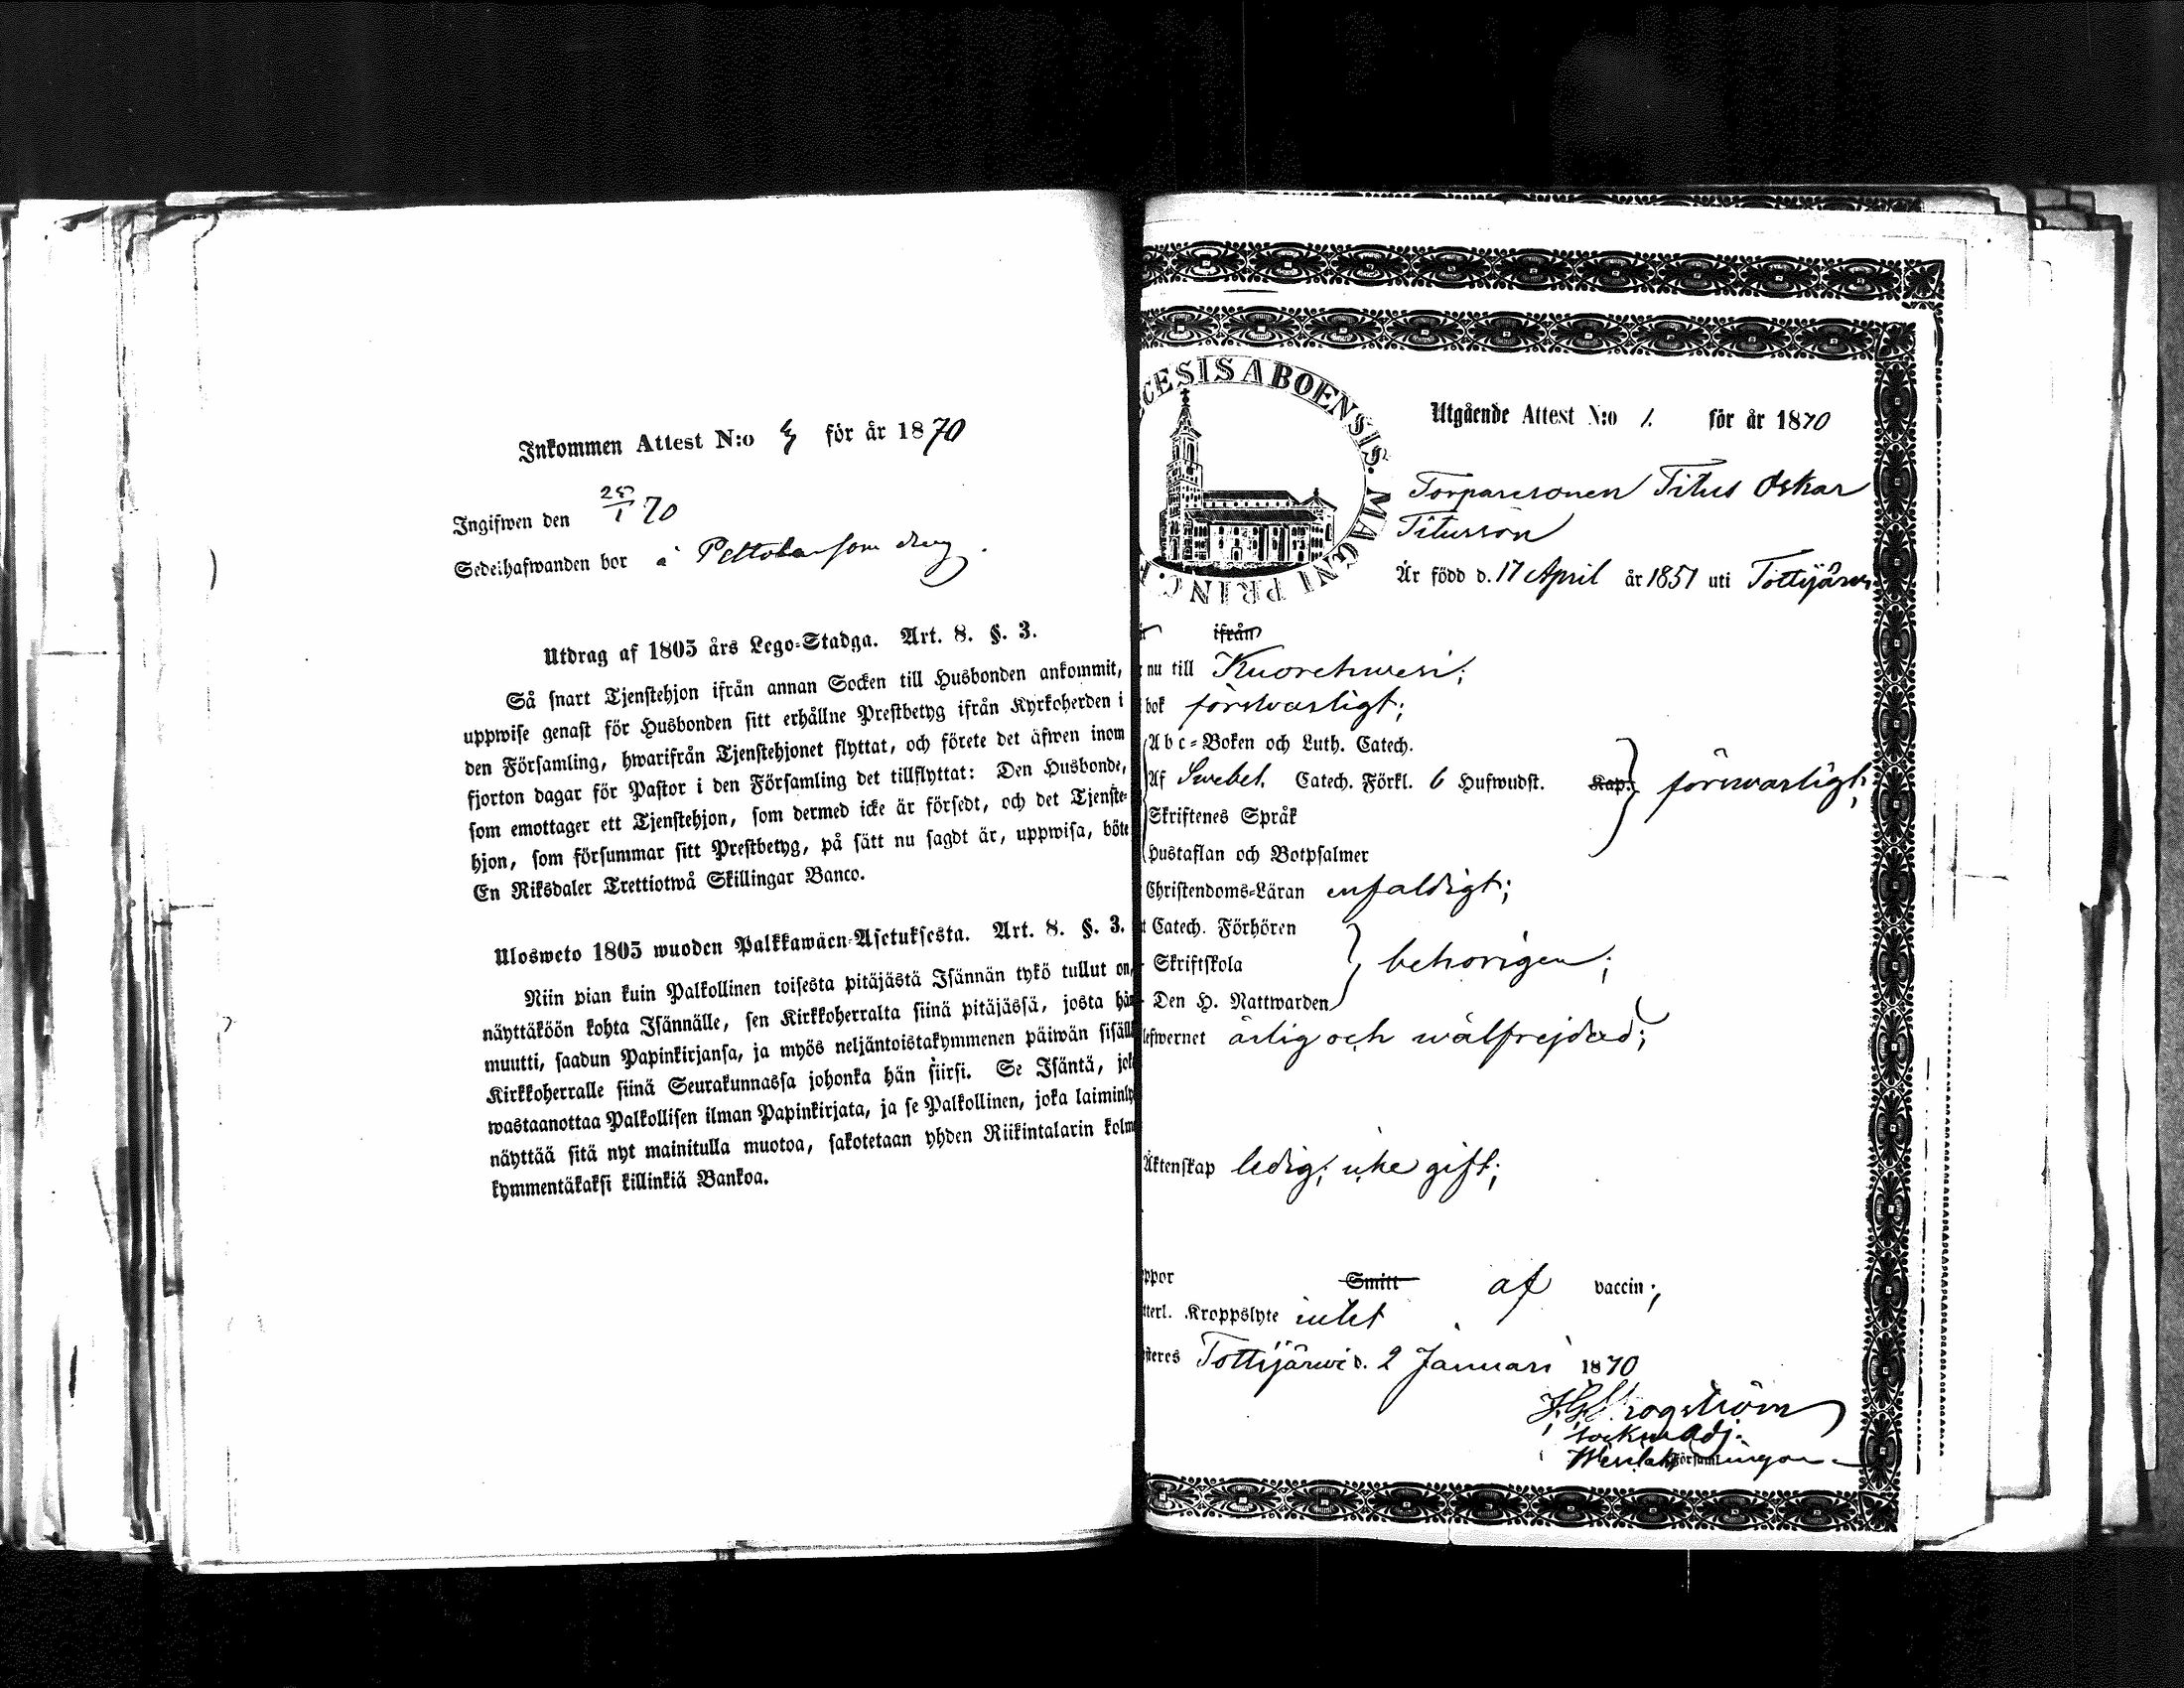 Inkommen Attest N:o för år 1870
Ingifwen den 25/1 70
Sedelhafwanden bor å som dreng.
Utdrag af 1805 års Lego-Stadga. Art. 8. §. 3.
Så snart Tjenstehjon ifrån annan Socken till Husbonden ankommit,
uppwise genast för Husbonden sitt erhållne Prestbetyg ifrån Kyrkoherden i
den Församling, hwarifrån Tjenstehjonet flyttat, och förete det äfwen inom
fjorton dagar för Pastor i den Församling det tillflyttat: Den Husbonde,
som emottager ett Tjenstehjon, som dermed icke är försedt, och det Tjenste-
hjon, som försummar sitt Prestbetyg, på sätt nu sagdt är, uppwisa, böte
En Riksdaler Trettiotwå Skillingar Banco.
Ulosweto 1805 wuoden Palkkawäen-Asetuksesta. Art. 8. §. 3.
Niin pian kuin Palkollinen toisesta pitäjästä Isännän tykö tullut on,
näyttäköön kohta Isännälle, sen Kirkkoherralta siinä pitäjässä, josta hän
muutti, saadun Papinkirjansa, ja myös neljäntoistakymmenen päiwän sisällä
Kirkkoherralle siinä Seurakunnassa johonka hän siirsi. Se Isäntä, joka
wastaanottaa Palkollisen ilman Papinkirjata, ja se Palkollinen, joka laiminly
näyttää sitä nyt mainitulla muotoa, sakotetaan yhden Riikintalarin kolme
kymmentäkaksi killinkiä Bankoa.
CESIS ABOENSIS. MAGNI PRINC.
Utgående Attest N:o 1. för år 1870
Torparesonen Titus Oskar
Titusson
Är född d. 17 April år 1851 uti Tottijärvi
ifrån
nu till Kuorehwesi;
bok försvarligt;
Abc-Boken och Luth. Catech.
Af Swebel. Catech. Förkl. 6 Hufwudst. Kap. försvarligt;
Skriftenes Språk
Hustaflan och Botpsalmer
Christendoms-Läran enfaldigt;
Catech. Förhören
Skriftskola behorigen;
Den H. Nattwarden
lefwernet ärlig och wälfrejdad;
Äktenskap ledig; icke gift;
ppor Smitt af vaccin;
tterl. Kroppslyte intet
steres Tottijärwi d. 2 Januari 1870
Sockne Adj.
Wesilaks Församlingen